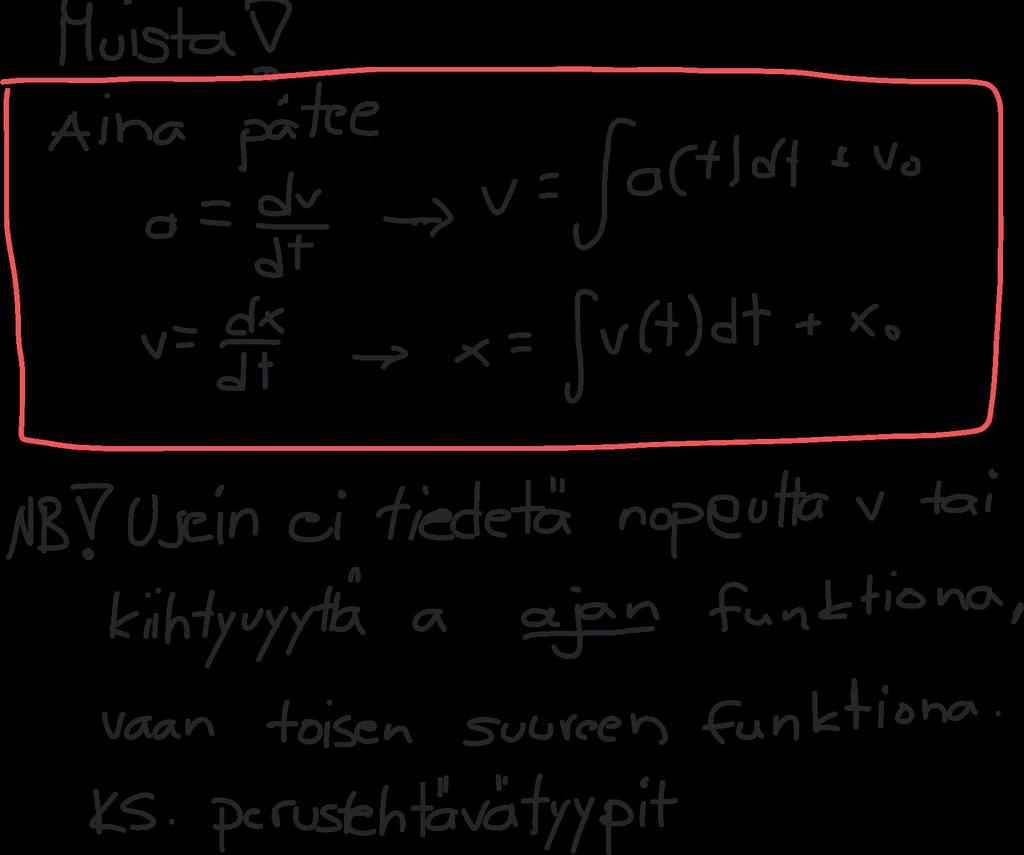 Muista!
Aina pätee
a = dv/dt → v = ∫a(t)dt + v₀
v = dx/dt → x = ∫v(t)dt + x₀
NB! Usein ei tiedetä nopeutta v tai
kiihtyvyyttä a ajan funktiona,
vaan toisen suureen funktiona.
KS. perustehtävätyypit